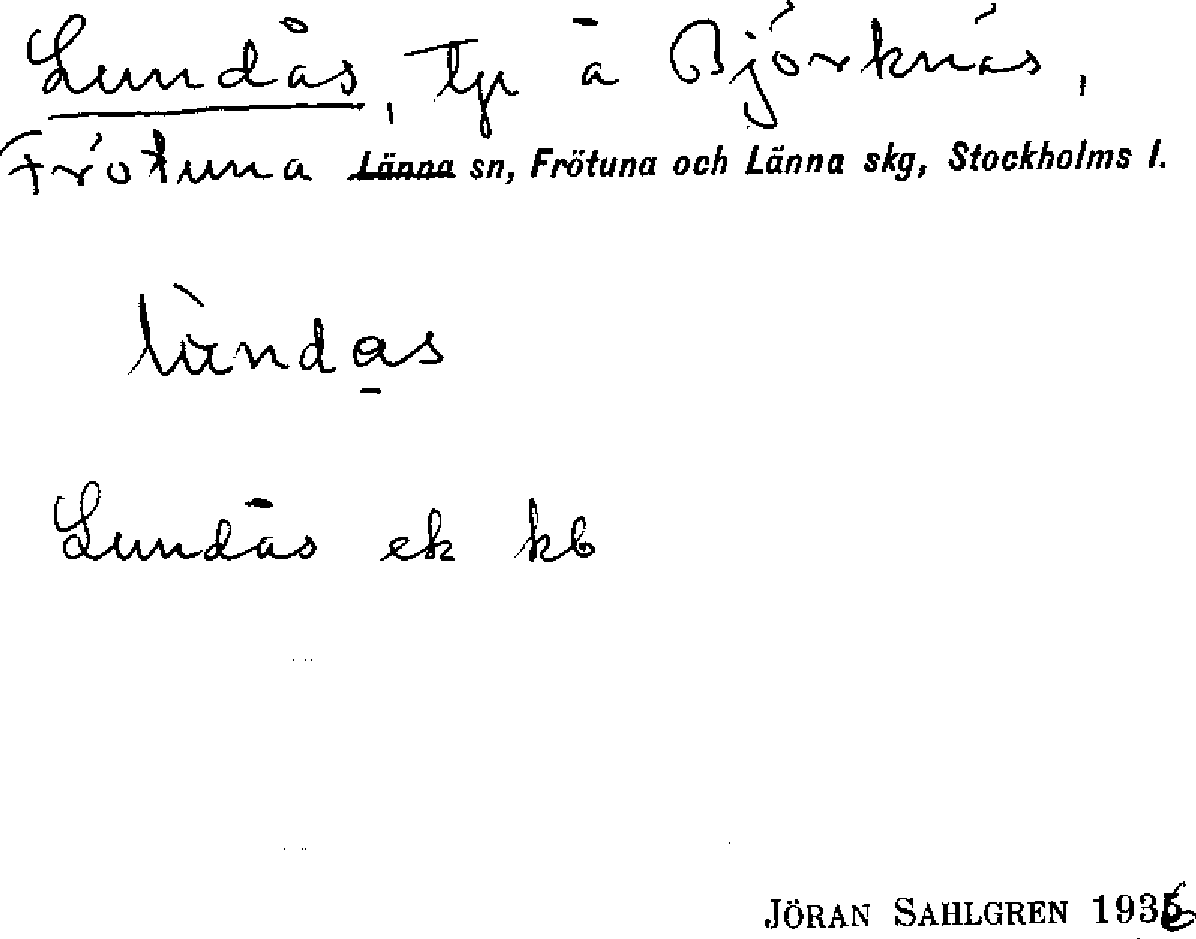 Lundås, Tp å Björknäs,
Frötuna Länna sn, Frötuna och Länna skg, Stockholms l.
lùndas
Lundås ek kb
JÖRAN SAHLGREN 1936